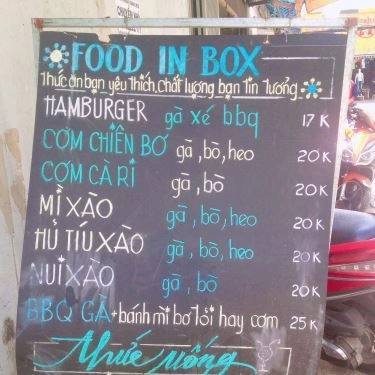 FOOD IN BOX
Thức ăn bạn yêu thích, chất lượng bạn tin tưởng
HAMBURGER gà xé bbq 17K
CƠM CHIÊN BƠ gà, bò, heo 20K
CƠM CÀ RI gà, bò 20K
MÌ XÀO gà, bò, heo 20K
HỦ TIÚ XÀO gà, bò, heo 20K
NUI XÀO gà, bò 20K
BBQ GÀ + bánh mì bơ tỏi hay cơm 25K
Thức uống